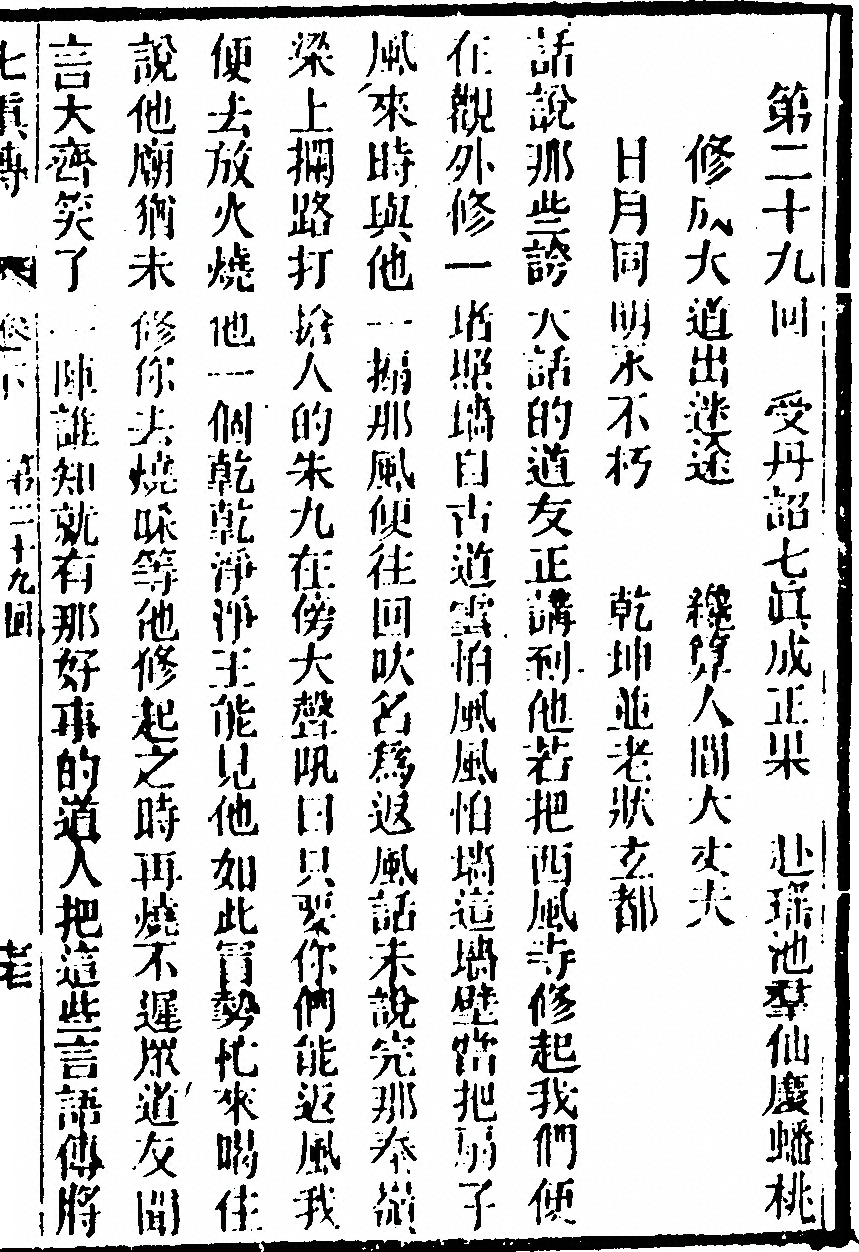 第二十九回　受丹詔七眞成正果　赴瑶池羣仙慶蟠桃
修成大道出迷途　　總算人間大丈夫
日月同明永不朽　　乾坤並老狀玄都
話說那些誇大話的道友正講到他若把西風寺修起我們便
在觀外修一堵照墻自古道雲怕風風怕墻這墻壁當把扇子
風來時與他一搧那風便往回吹名爲返風話未說完那秦嶺
梁上攔路打搶人的朱九在傍大聲吼曰只要你們能返風我
便去放火燒他一個乾乾淨淨王能見他如此冒勢忙來喝住
說他廟猶未修你去燒啋等他修起之時再燒不遲衆道友聞
言大齊笑了一陣誰知就有那好事的道人把這些言語傳將
七眞傳　卷下　第二十九回　老